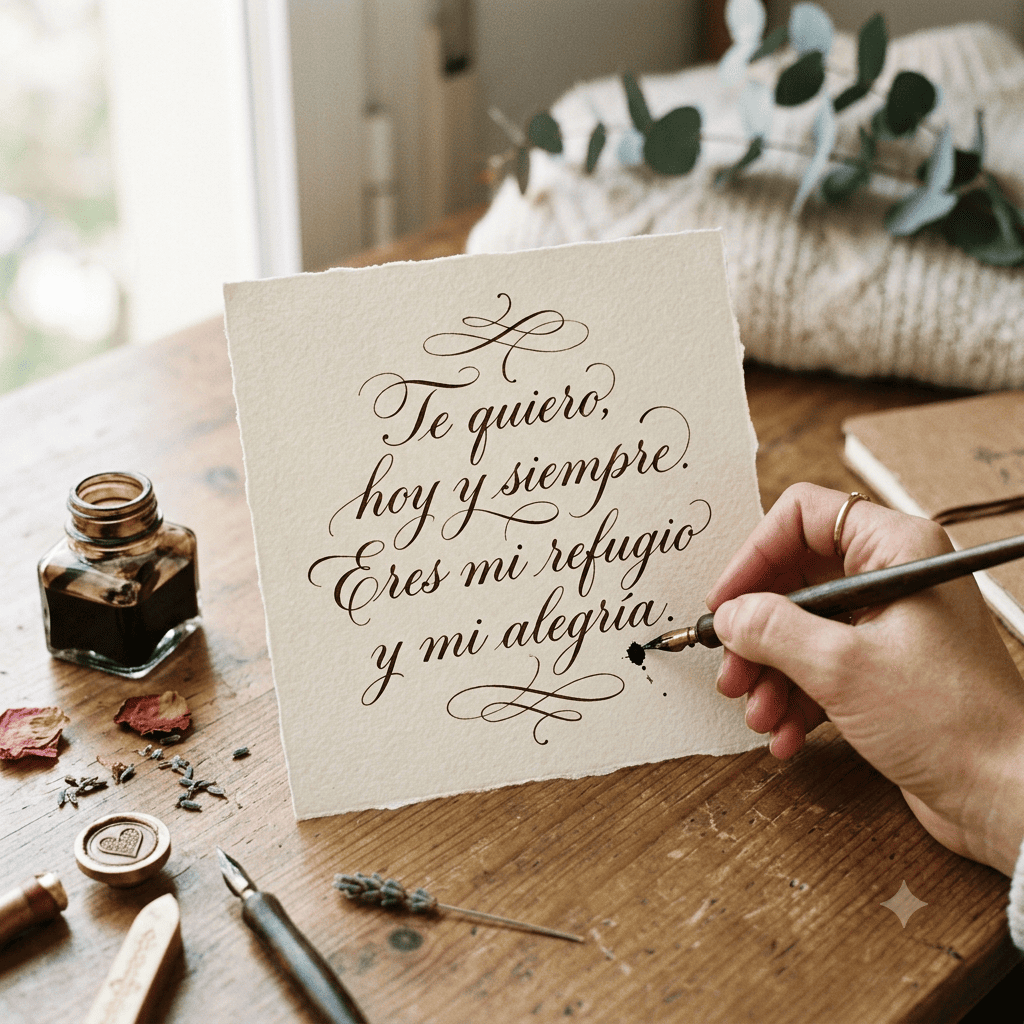 Te quiero,
hoy y siempre.
Eres mi refugio
y mi alegría.